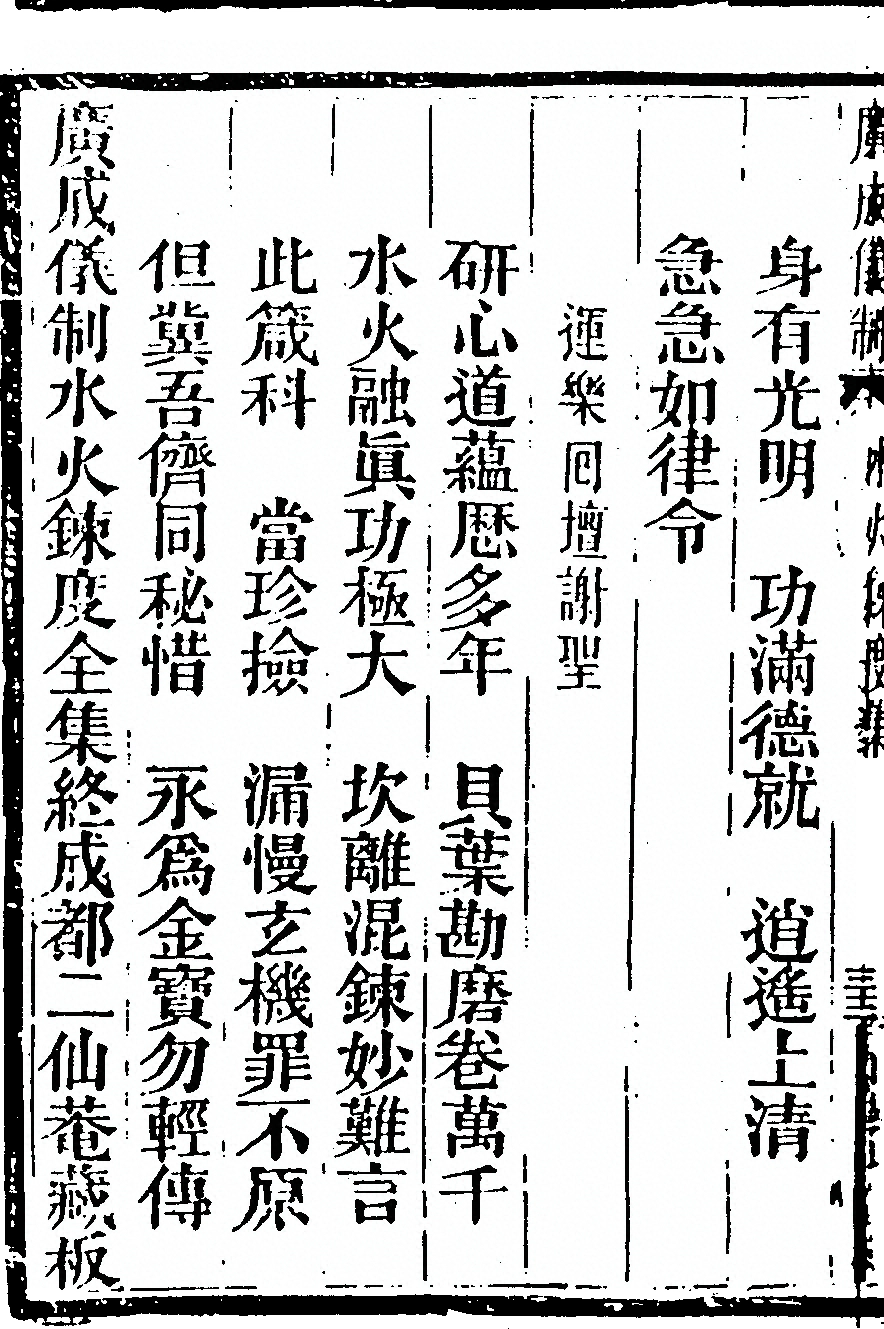 身有光明　功滿德就　逍遙上清
急急如律令
運樂回壇謝聖
研心道蘊歷多年　貝葉勘磨卷萬千
水火融眞功極大　坎離混鍊妙難言
此箴科　當珍撿　漏慢玄機罪不原
但冀吾儕同秘惜　永爲金寶勿輕傳
廣成儀制水火鍊度全集終成都二仙菴藏板